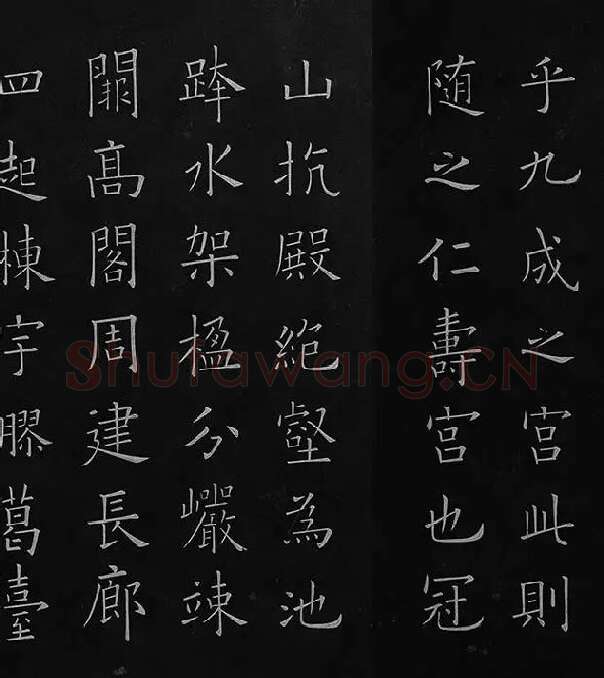 乎九成之宫此則
随之仁壽宫也冠
山抗殿絶壑為池
跨水架楹分巖竦
闕高閣周建長廊
四起棟宇膠葛臺
Shufawang.CN